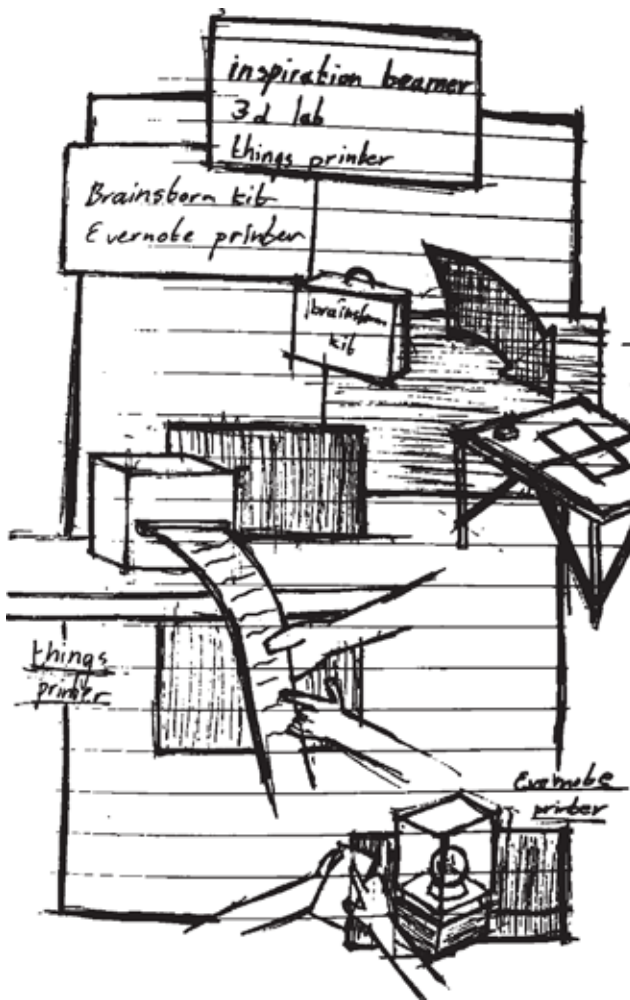 inspiration beamer
3d lab
things printer
Brainstorm kit
Evernote printer
brainstorm
kit
things
printer
Evernote
printer